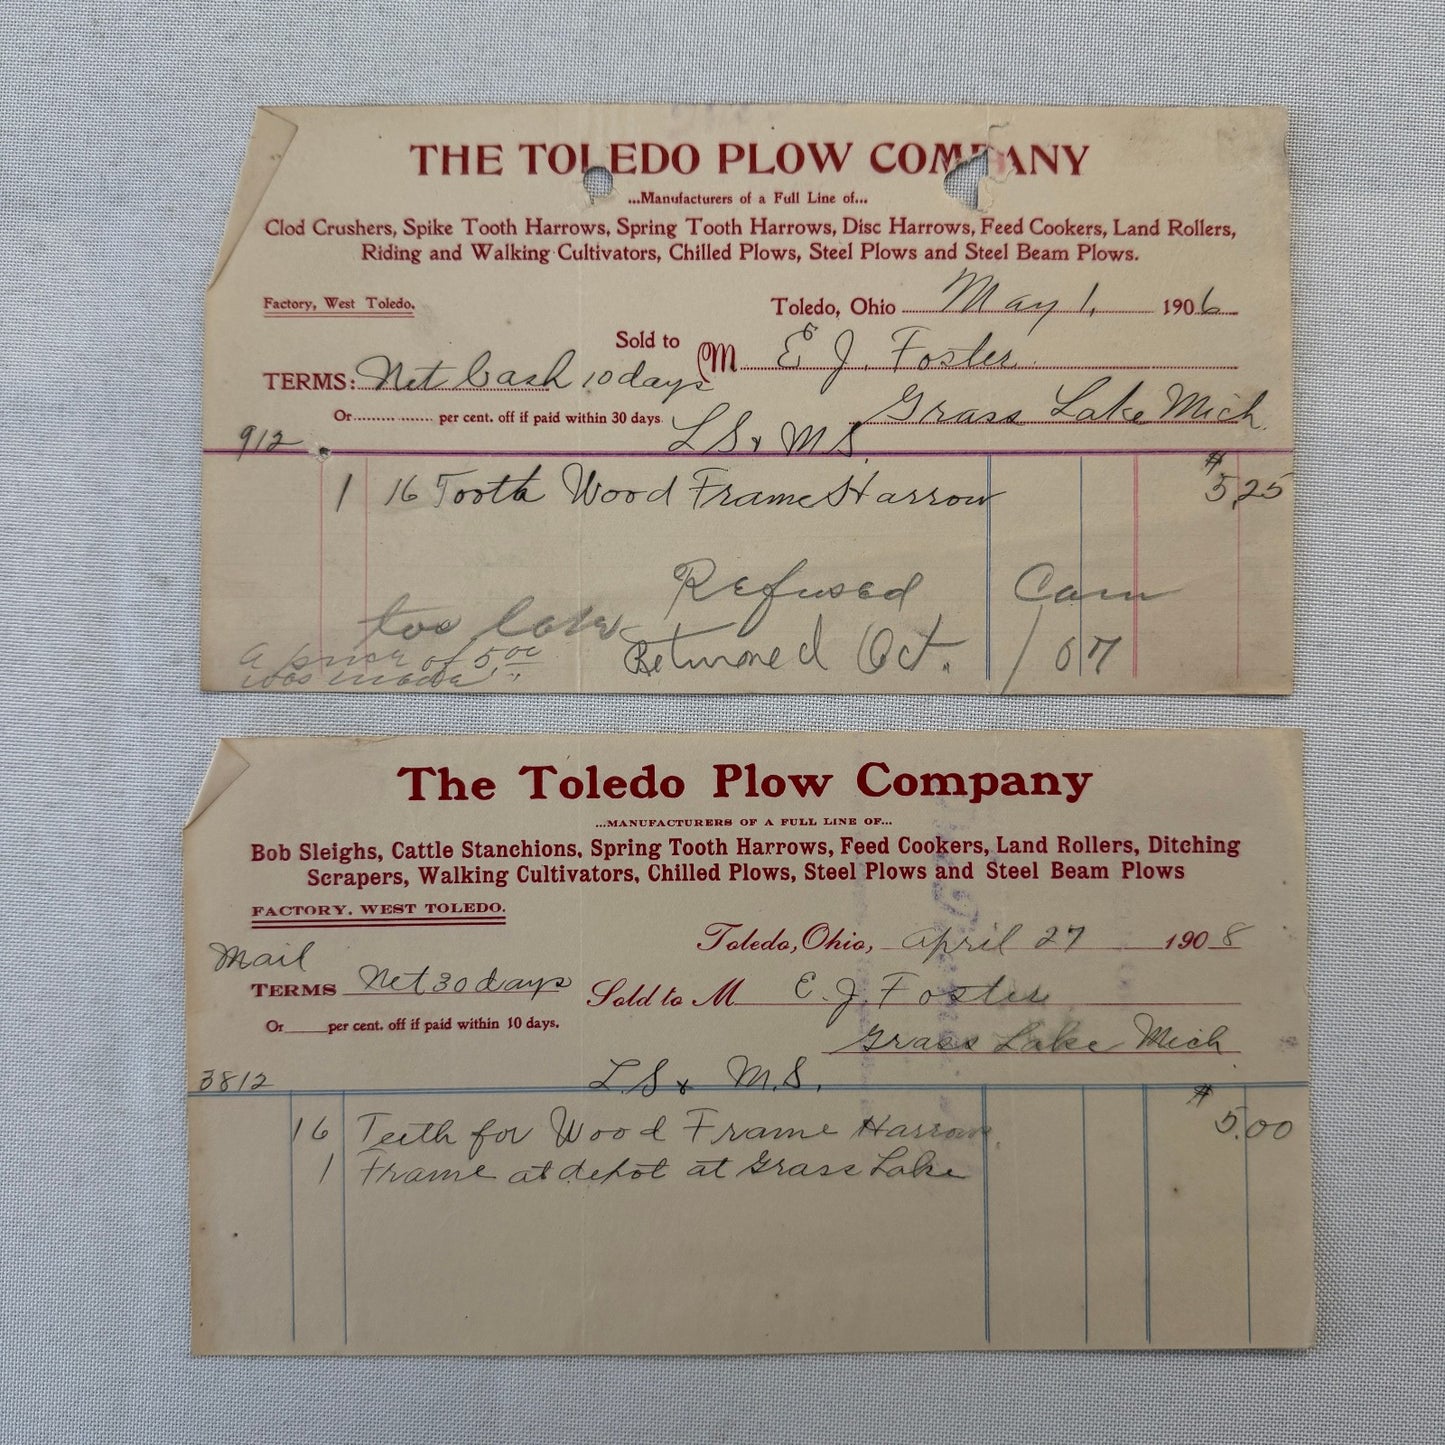 THE TOLEDO PLOW COMPANY
...Manufacturers of a Full Line of...
Clod Crushers, Spike Tooth Harrows, Spring Tooth Harrows, Disc Harrows, Feed Cookers, Land Rollers,
Riding and Walking Cultivators, Chilled Plows, Steel Plows and Steel Beam Plows.
Factory, West Toledo.
Toledo, Ohio May 1, 1906
Sold to M E J. Foster
TERMS: Net Cash 10 days
Grass Lake Mich.
Or per cent. off if paid within 30 days.
L S & M S.
912
1 16 Tooth Wood Frame Harrow $5.25
Refused
too late
Returned Oct. / 07
a price of 5.00
was made
The Toledo Plow Company
...MANUFACTURERS OF A FULL LINE OF...
Bob Sleighs, Cattle Stanchions, Spring Tooth Harrows, Feed Cookers, Land Rollers, Ditching
Scrapers, Walking Cultivators, Chilled Plows, Steel Plows and Steel Beam Plows
FACTORY. WEST TOLEDO.
Toledo, Ohio, April 27 1908
Mail
TERMS Net 30 days
Sold to M E. J. Foster
Or per cent. off if paid within 10 days.
Grass Lake Mich.
3812 L. S & M. S.
16 Teeth for Wood Frame Harrow. $5.00
1 Frame at depot at Grass Lake